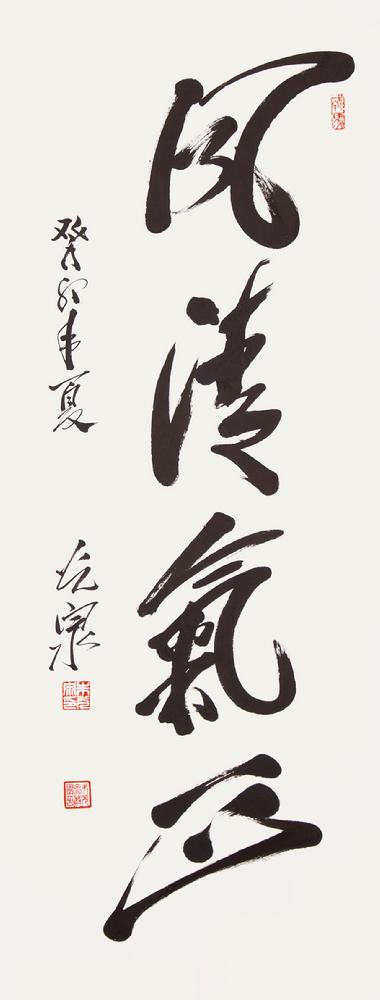 風清氣正
癸卯年夏